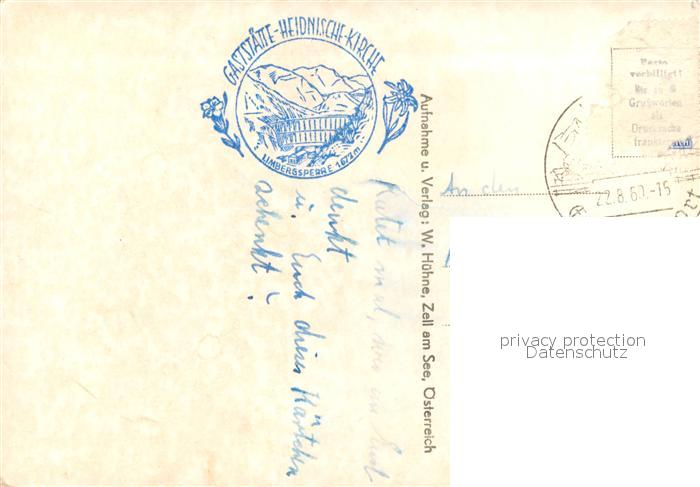 GASTSTÄTTE-HEIDNISCHE-KIRCHE
LIMBERGSPERRE 1672m
Ratet mal, wer an Euch
denkt
u. Euch dieses Kärtchen
schenkt!
Aufnahme u. Verlag: W. Hühne, Zell am See, Österreich
An den
Porto
verbilligt!
Bis zu 5
Grußworten
als
Drucksache
22.8.60.-15
privacy protection
Datenschutz